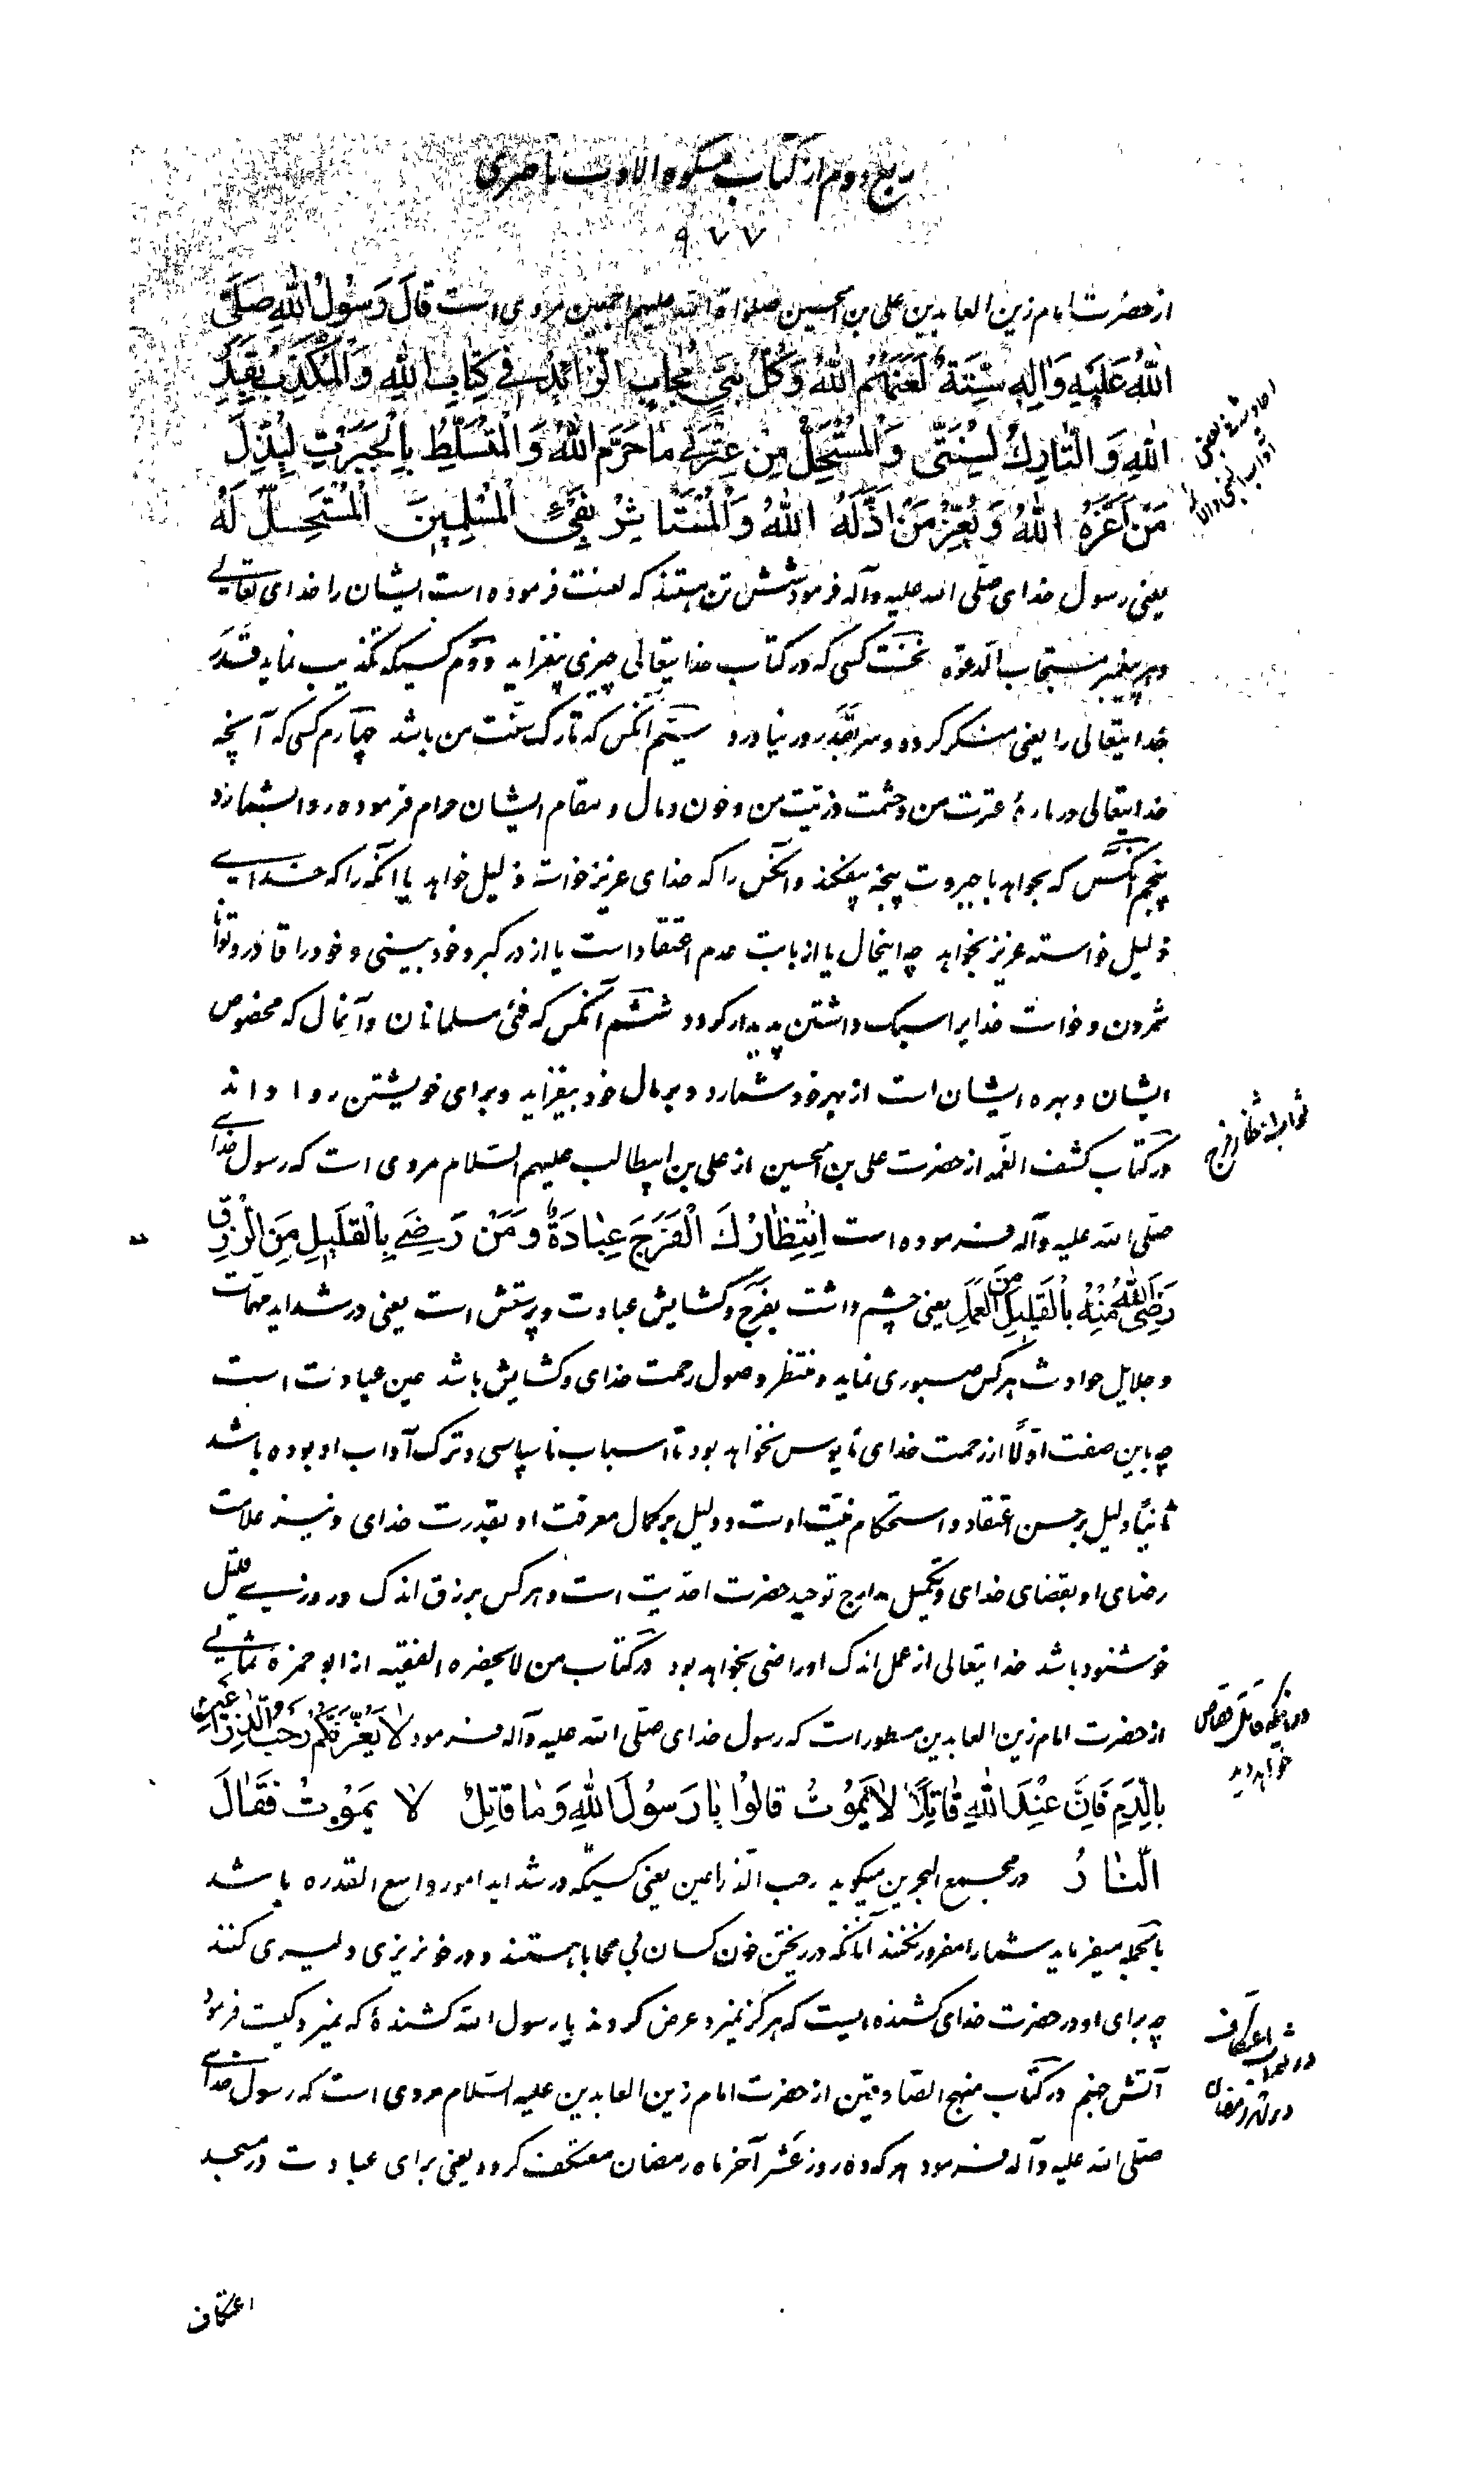 ربع دوم از کتاب مشکوة الادب ناصری
۹۷۷
از حضرت امام زین العابدین علی بن الحسین صلوات الله علیهم اجمعین مروی است قالَ رَسُولُ اللهِ صَلَّی
اللهُ عَلَیْهِ وَالِهِ سِتَّةٌ لَعَنَهُمُ اللهُ وَکُلُّ نَبِیٍّ مُجابٍ الزّائِدُ فی کِتابِ اللهِ وَالْمُکَذِّبُ بِقَدَرِ
اللهِ وَ التّارِكُ لِسُنَّتی وَالْمُسْتَحِلُّ مِنْ عِتْرَتی ماحَرَّمَ اللهُ وَالْمُتَسَلِّطُ بِالْجَبَرُوتِ لِیُذِلَّ
مَنْ اَعَزَّهُ اللهُ وَ یُعِزَّ مَنْ اَذَلَّهُ اللهُ وَالْمُسْتَاثِرُ بِفَیْءِ الْمُسْلِمِینَ الْمُسْتَحِلُّ لَهُ
یعنی رسول خدای صلّی الله علیه وآله فرمود شش تن هستند که لعنت فرموده است ایشان را خدای تعالی
وهر پیغمبر مستجاب الدعوه نخست کسی که در کتاب خدایتعالی چیزی بیفزاید دوّم کسیکه تکذیب نماید قدر
خدایتعالی را یعنی منکر گردد و سر بقدر در نیاورد سیّم آنکس که تارک سنّت من باشد چهارم کسی که آنچه
خدایتعالی در بارهٔ عترت من و حشمت ذرّیّت من و خون و مال و مقام ایشان حرام فرموده روا بشمارد
پنجم آنکس که بخواهد با جبروت پنجه بیفکند و آنکس را که خدای عزیز خواسته ذلیل خواهد یا آنکه را که خدای
ذلیل خواسته عزیز بخواهد چه اینحال یا از بابت عدم اعتقاد است یا از در کبر و خود بینی و خود را قادر و توانا
شمردن و خواست خدایرا سبک داشتن پدیدار گردد ششم آنکس که فیٔ مسلمانان و آنمال که مخصوص
ایشان و بهره ایشان است از بهر خود شمارد و بر مال خود بیفزاید و برای خویشتن روا داند
در کتاب کشف الغمّه از حضرت علی بن الحسین از علی بن ابیطالب علیهم السّلام مروی است که رسول خدای
صلّی الله علیه وآله فرموده است اِنْتِظارُكَ الْفَرَجَ عِبادَةٌ وَ مَنْ رَضِیَ بِالْقَلیلِ مِنَ الرِّزْقِ
رَضِیَ اللهُ مِنْهُ بِالْقَلیلِ مِنَ الْعَمَلِ یعنی چشم داشت بفرج و گشایش عبادت و پرستش است یعنی در شداید مهمّات
و جلایل حوادث هر کس صبوری نماید و منتظر وصول رحمت خدای و گشایش باشد عین عبادت است
چه باین صفت اوّلاً از رحمت خدای مایوس نخواهد بود تا اسباب ناسپاسی و ترک آداب او بوده باشد
ثانیاً دلیل بر حسن اعتقاد و استحکام نیّت اوست و دلیل بر کمال معرفت او بقدرت خدای و نیز علامت
رضای او بقضای خدای و تکمیل مدارج توحید حضرت احدّیت است و هر کس برزق اندک و روزی قلیل
خوشنود باشد خدایتعالی از عمل اندک او راضی بخواهد بود در کتاب من لایحضره الفقیه از ابو حمزه ثمالی
از حضرت امام زین العابدین مسطور است که رسول خدای صلّی الله علیه وآله فرمود لا یَغُرَّنَّکُمْ رَحْبُ الذِّراعَیْنِ
بِالدَّمِ فَاِنَّ عِنْدَ اللهِ قاتِلاً لا یَمُوتُ قالُوا یا رَسُولَ اللهِ وَ ما قاتِلٌ لا یَمُوتُ فَقالَ
النّارُ در مجمع البحرین میگوید رحب الذراعین یعنی کسیکه در شداید امور واسع القدره باشد
بالجمله میفرماید شما را مغرور نکنند آنانکه در ریختن خون کسان بی محابا هستند و در خونریزی دلیری کنند
چه برای او در حضرت خدای کشنده ایست که هرگز نمیرد عرض کردند یا رسول الله کشندهٔ که نمیرد کیست فرمود
آتش جهنم در کتاب منهج الصّادقین از حضرت امام زین العابدین علیه السّلام مروی است که رسول خدای
صلّی الله علیه وآله فرمود هر که ده روز عَشر آخر ماه رمضان معتکف گردد یعنی برای عبادت در مسجد
ثواب انتظار فرج
در اینکه قاتل قصاص
خواهد دید
در ثواب اعتکاف
در شهر رمضان
اعتکاف